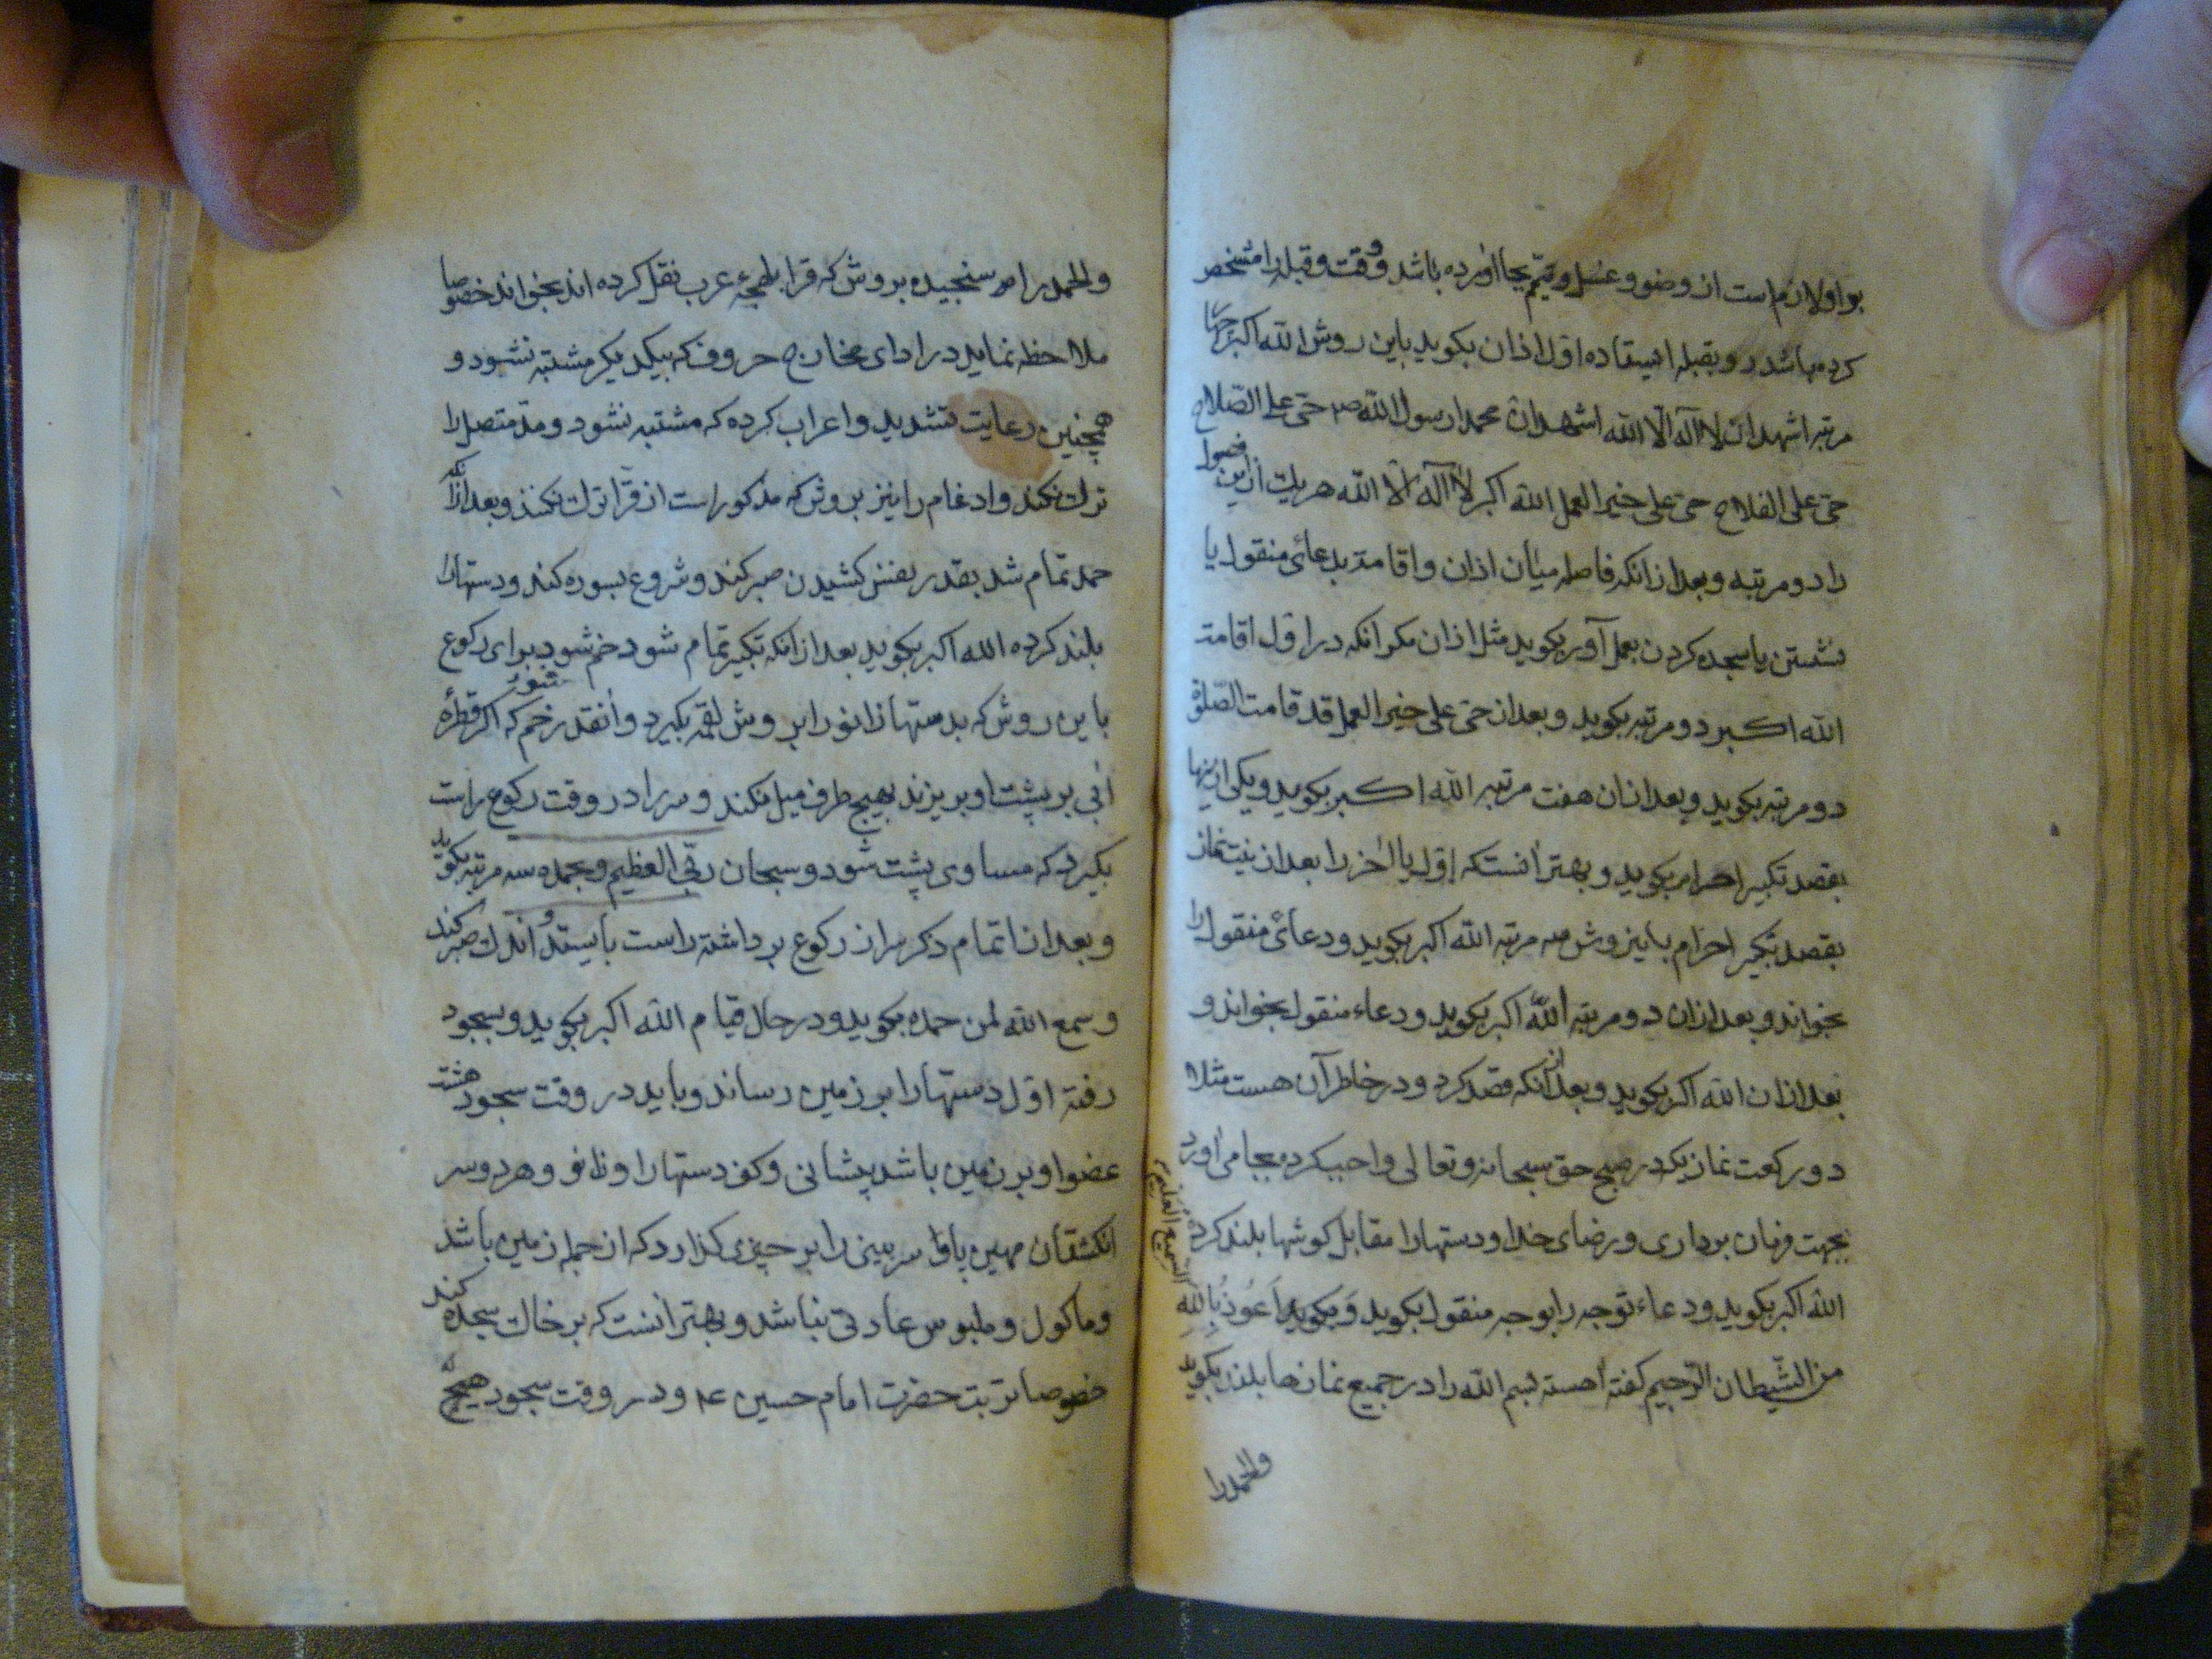 بر او لازم است از وضو و غسل و تیمم بجا اورده باشد و وقت و قبله را مشخص
کرده باشد رو بقبله ایستاده اول اذان بکوید باین روش الله اکبر چهار
مرتبه اشهد ان لا اله الا الله اشهد ان محمدا رسول الله ص حی علی الصلاح
حی علی الفلاح حی علی خیر العمل الله اکبر لا اله الا الله هر یک از این فصول
را دو مرتبه و بعد از انکه فاصله میان اذان و اقامة بدعائی منقول یا
نشستن یا سجده کردن بعمل آورد بکوید مثل اذان مکر انکه در اول اقامت
الله اکبر دو مرتبه بکوید و بعد از حی علی خیر العمل قد قامت الصلوة
دو مرتبه بکوید و بعد از ان هفت مرتبه الله اکبر بکوید و یکی از ینها
بقصد تکبیر احرام بکوید و بهتر انست که اول یا اخر را بعد از نیت نماز
بقصد تکبیر احرام باین روش سه مرتبه الله اکبر بکوید و دعائی منقول را
بخواند و بعد از ان دو مرتبه الله اکبر بکوید و دعاء منقول بخواند و
بعد از ان الله اکبر بکوید و بعد از آنکه قصد کرد و در خاطر آن هست مثلا
دو رکعت نمازیکه در صبح حق سبحانه و تعالی واجب کرده بجا می اورد
بجهت فرمان برداری و رضای خدا و دستها را مقابل کوشها بلند کرده
الله اکبر بکوید و دعاء توجه را بوجه منقول بکوید و بکوید اعوذ بالله
السمیع العلیم
من الشیطان الرجیم کفته اهسته بسم الله را در جمیع نمازها بلند بکوید
والحمد را
والحمد را سنجیده بروش که قرا بلهجهٔ عرب نقل کرده اند بخواند خصوصا
ملاحظه نماید در ادای مخارج حروف که بیکدیکر مشتبه نشود و
همچنین رعایت تشدید و اعراب کرده که مشتبه نشود و مد متصل را
ترک نکند و ادغام را نیز بروش که مذکور است از قرا ترک نکند و بعد از آنکه
حمد تمام شد بقدر نفس کشیدن صبر کند و شروع بسوره کند و دستها را
بلند کرده الله اکبر بکوید بعد از انکه تکبیر تمام شود خم شود برای رکوع
باین روش که بدستها زانو را بروش لقمه بکیرد و انقدر خم شود که اکر قطرهٔ
ابی بر پشت او بریزند بهیچ طرف میل نکند و سر را در وقت رکوع راست
بکیرد که مساوی پشت شود و سبحان ربی العظیم و بحمده سه مرتبه بکوید
و بعد از اتمام ذکر سر از رکوع برداشته راست بایستد و اندک صبر کند
و سمع الله لمن حمده بکوید و در حال قیام الله اکبر بکوید و بسجود
رفته اول دستها را بر زمین رساند و باید در وقت سجود هشت
عضو او بر زمین باشد پیشانی و کف دستها را و زانو و هر دو سر
انکشتان مهین پا و سر بینی را بر چیزی کذارد که از جمله زمین باشد
و ماکول و ملبوس عادتی نباشد و بهتر انست که بر خاک سجده کند
خصوصا تربت حضرت امام حسین ع و در وقت سجود هیچ